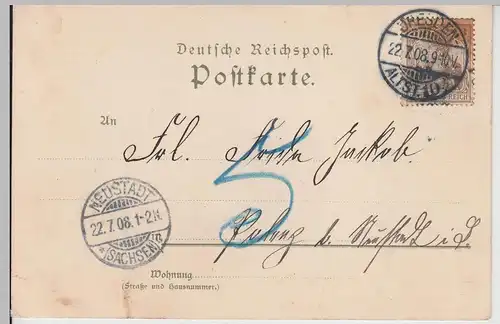 Deutsche Reichspost.
Postkarte.
DRESDEN
22.7.08.9-10V.
ALTST. 10
REICH
An
Frl. Frida Jackob.
5
Polenz b. Neustadt i. S.
NEUSTADT
22.7.08.1-2N.
(SACHSEN)
Wohnung
(Straße und Hausnummer.)